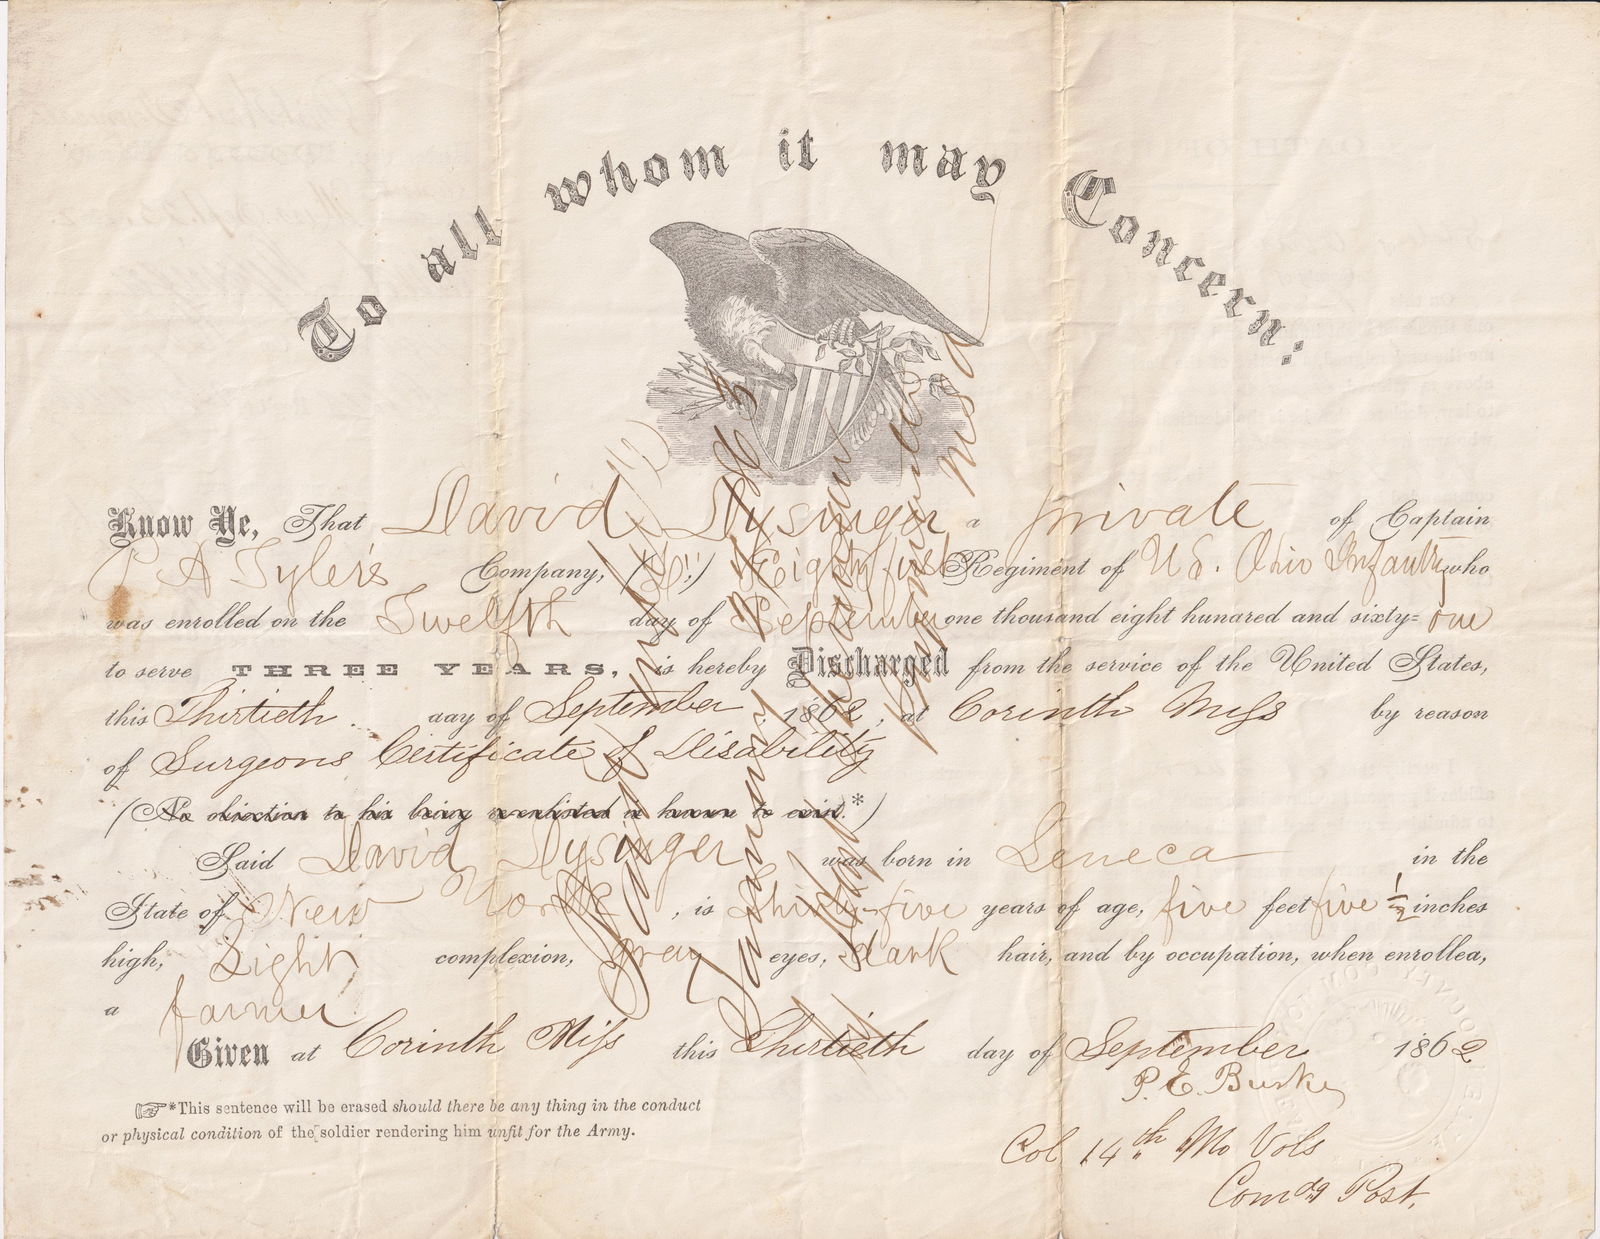 To all whom it may Concern:
Know Ye, That David Dysinger a private of Captain
P A Tyler's Company, ( ) Eighty first Regiment of U.S. Ohio Infantry who
was enrolled on the Twelfth day of September one thousand eight hundred and sixty=one
to serve THREE YEARS, is hereby Discharged from the service of the United States,
this Thirtieth day of September 1862, at Corinth Miss by reason
of Surgeons Certificate of Disability
(No objection to his being reenlisted is known to exist.*)
Said David Dysinger was born in Seneca in the
State of New York, is Thirty-five years of age, five feet five ½ inches
high, Light complexion, Gray eyes, dark hair, and by occupation, when enrolled,
a farmer.
Given at Corinth Miss this Thirtieth day of September 1862
P. E. Burke
☞*This sentence will be erased should there be any thing in the conduct
or physical condition of the soldier rendering him unfit for the Army.
Col 14th Mo Vols
Comdg Post.
Paid in full
January